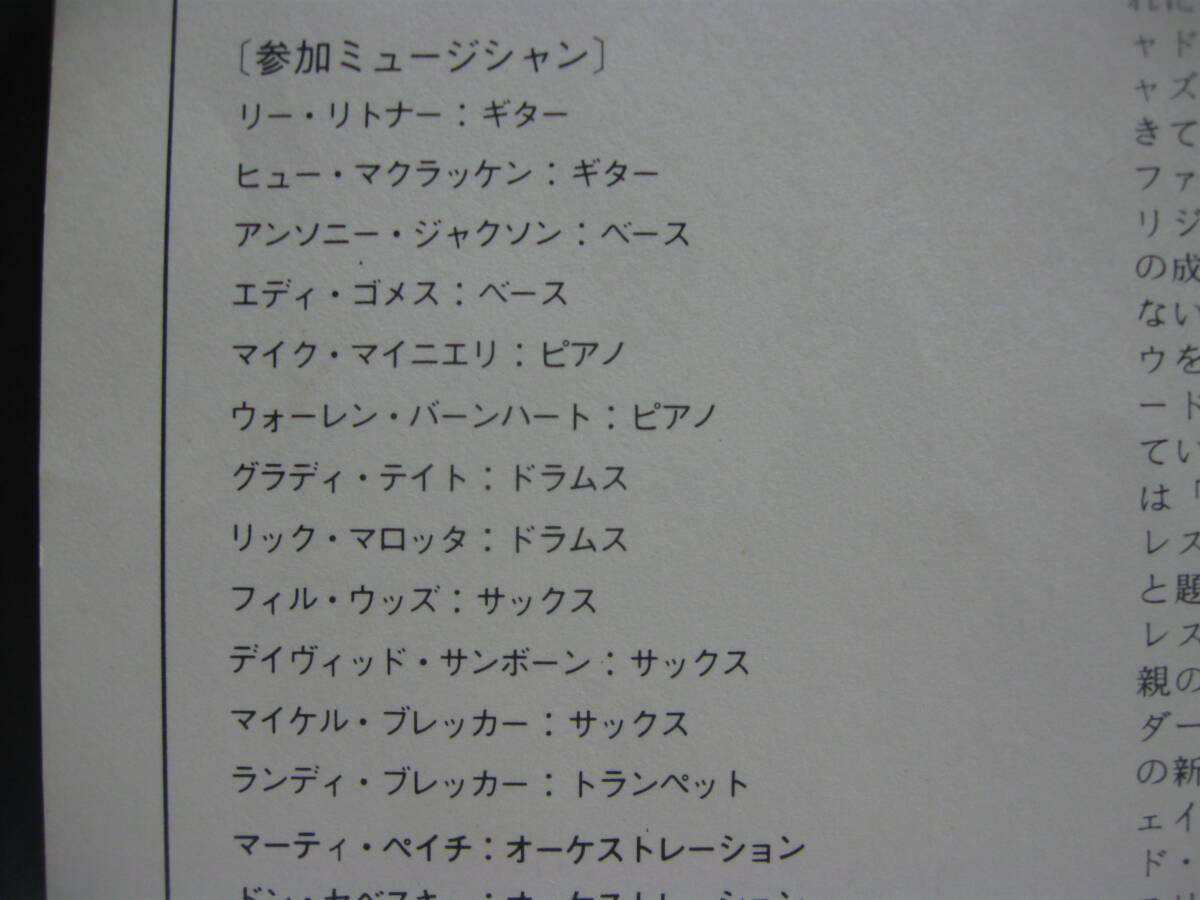 〔参加ミュージシャン〕
リー・リトナー：ギター
ヒュー・マクラッケン：ギター
アンソニー・ジャクソン：ベース
エディ・ゴメス：ベース
マイク・マイニエリ：ピアノ
ウォーレン・バーンハート：ピアノ
グラディ・テイト：ドラムス
リック・マロッタ：ドラムス
フィル・ウッズ：サックス
デイヴィッド・サンボーン：サックス
マイケル・ブレッカー：サックス
ランディ・ブレッカー：トランペット
マーティ・ペイチ：オーケストレーション
ドン・セベスキー：オーケストレーション
ャド
ャズ
きて
ファ
リジ
の成
ない
ウを
ード
てい
は「
レス
と題
レス
親の
ダー
の新
ェイ
ド・